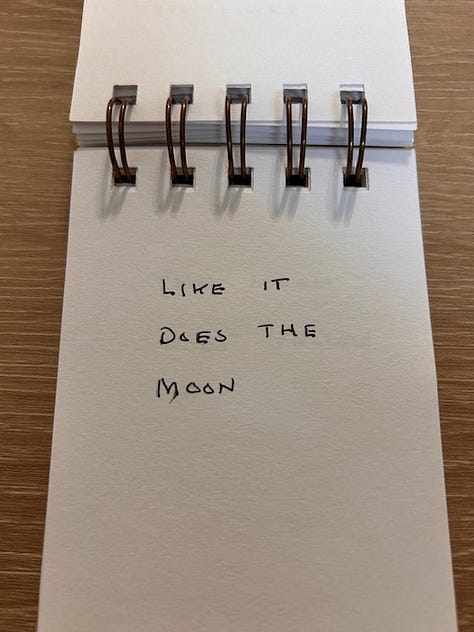 LIKE IT
DOES THE
MOON